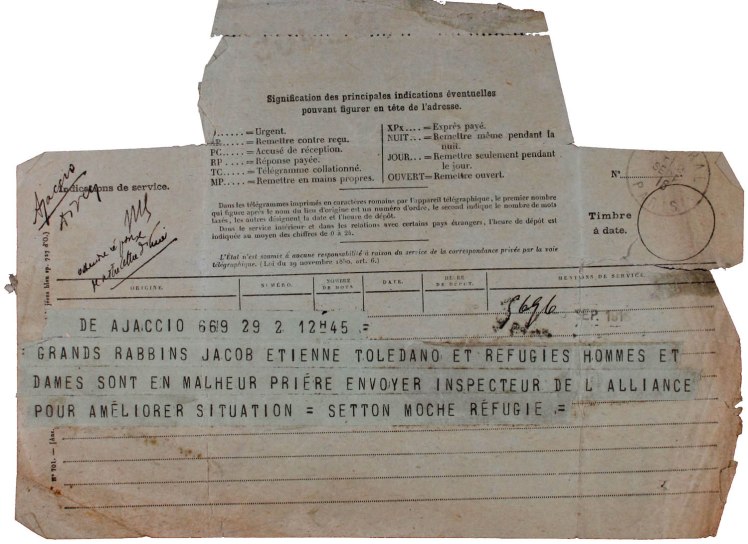 Signification des principales indications éventuelles
pouvant figurer en tête de l'adresse.
..... = Urgent.
..... = Remettre contre reçu.
PC ..... = Accusé de réception.
RP ..... = Réponse payée.
TC ..... = Télégramme collationné.
MP ..... = Remettre en mains propres.
XPx .... = Exprès payé.
NUIT ... = Remettre même pendant la
nuit.
JOUR ... = Remettre seulement pendant
le jour.
OUVERT = Remettre ouvert.
Ajaccio
Indications de service.
Dans les télégrammes imprimés en caractères romains par l'appareil télégraphique, le premier nombre
qui figure après le nom du lieu d'origine est un numéro d'ordre, le second indique le nombre de mots
taxés, les autres désignent la date et l'heure de dépôt.
Dans le service intérieur et dans les relations avec certains pays étrangers, l'heure de dépôt est
indiquée au moyen des chiffres de 0 à 24.
L'État n'est soumis à aucune responsabilité à raison du service de la correspondance privée par la voie
télégraphique. (Loi du 29 novembre 1850, art. 6.)
N°
Timbre
à date.
ORIGINE.
NUMÉRO.
NOMBRE
DE MOTS
DATE.
HEURE
DE DÉPÔT.
MENTIONS DE SERVICE.
5696
SEP. 191
DE AJACCIO 669 29 2 12H45 =
GRANDS RABBINS JACOB ETIENNE TOLEDANO ET REFUGIES HOMMES ET
DAMES SONT EN MALHEUR PRIÉRE ENVOYER INSPECTEUR DE L ALLIANCE
POUR AMÉLIORER SITUATION = SETTON MOCHE RÉFUGIE =
N° 701.